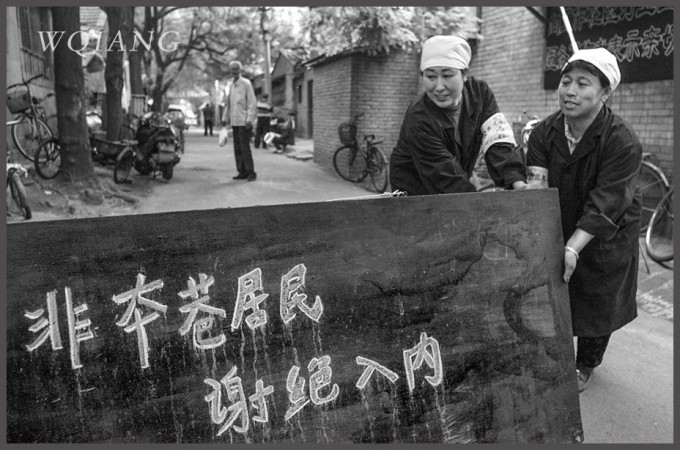 WQIANG
非本巷居民
谢绝入内